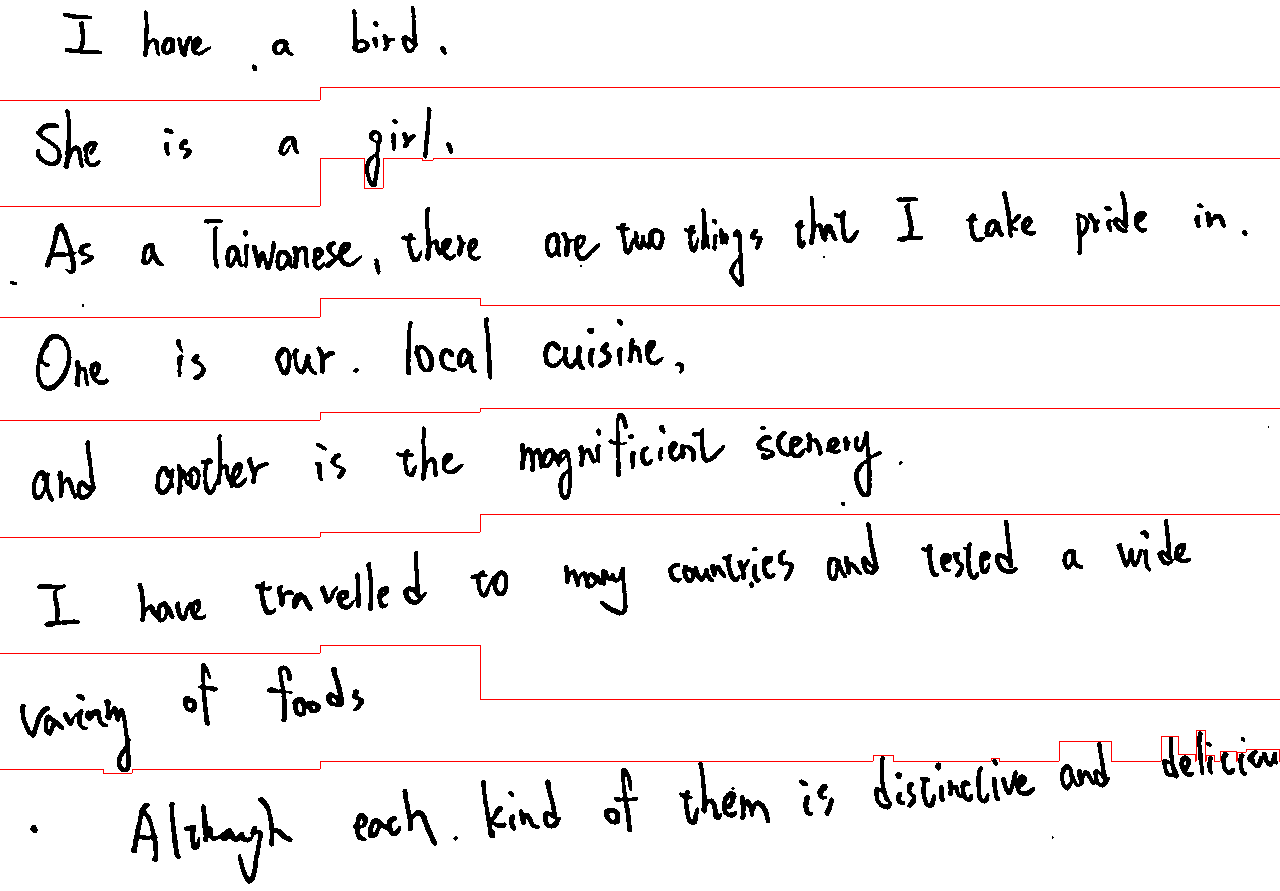 I have a bird.
She is a girl.
As a Taiwanese, there are two things that I take pride in.
One is our local cuisine,
and another is the magnificient scenery.
I have travelled to many countries and tested a wide
of foods
Although each kind of them is distinctive and deliciou